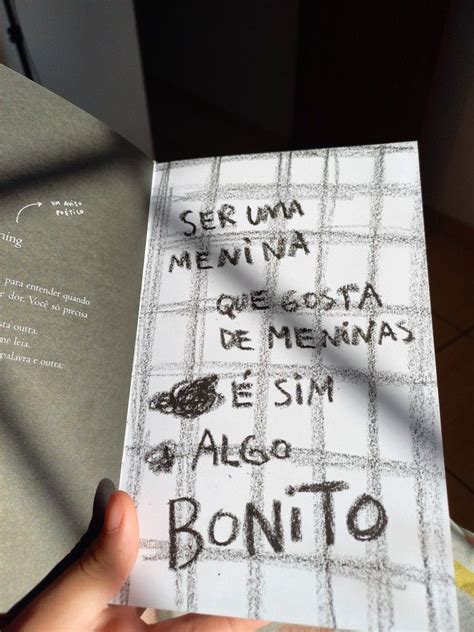 um aviso
poético
ning
para entender quando
e dor. Você só precisa
sta outra.
me leia.
palavra e outra;
SER UMA
MENINA
QUE GOSTA
DE MENINAS
É SIM
ALGO
BONITO